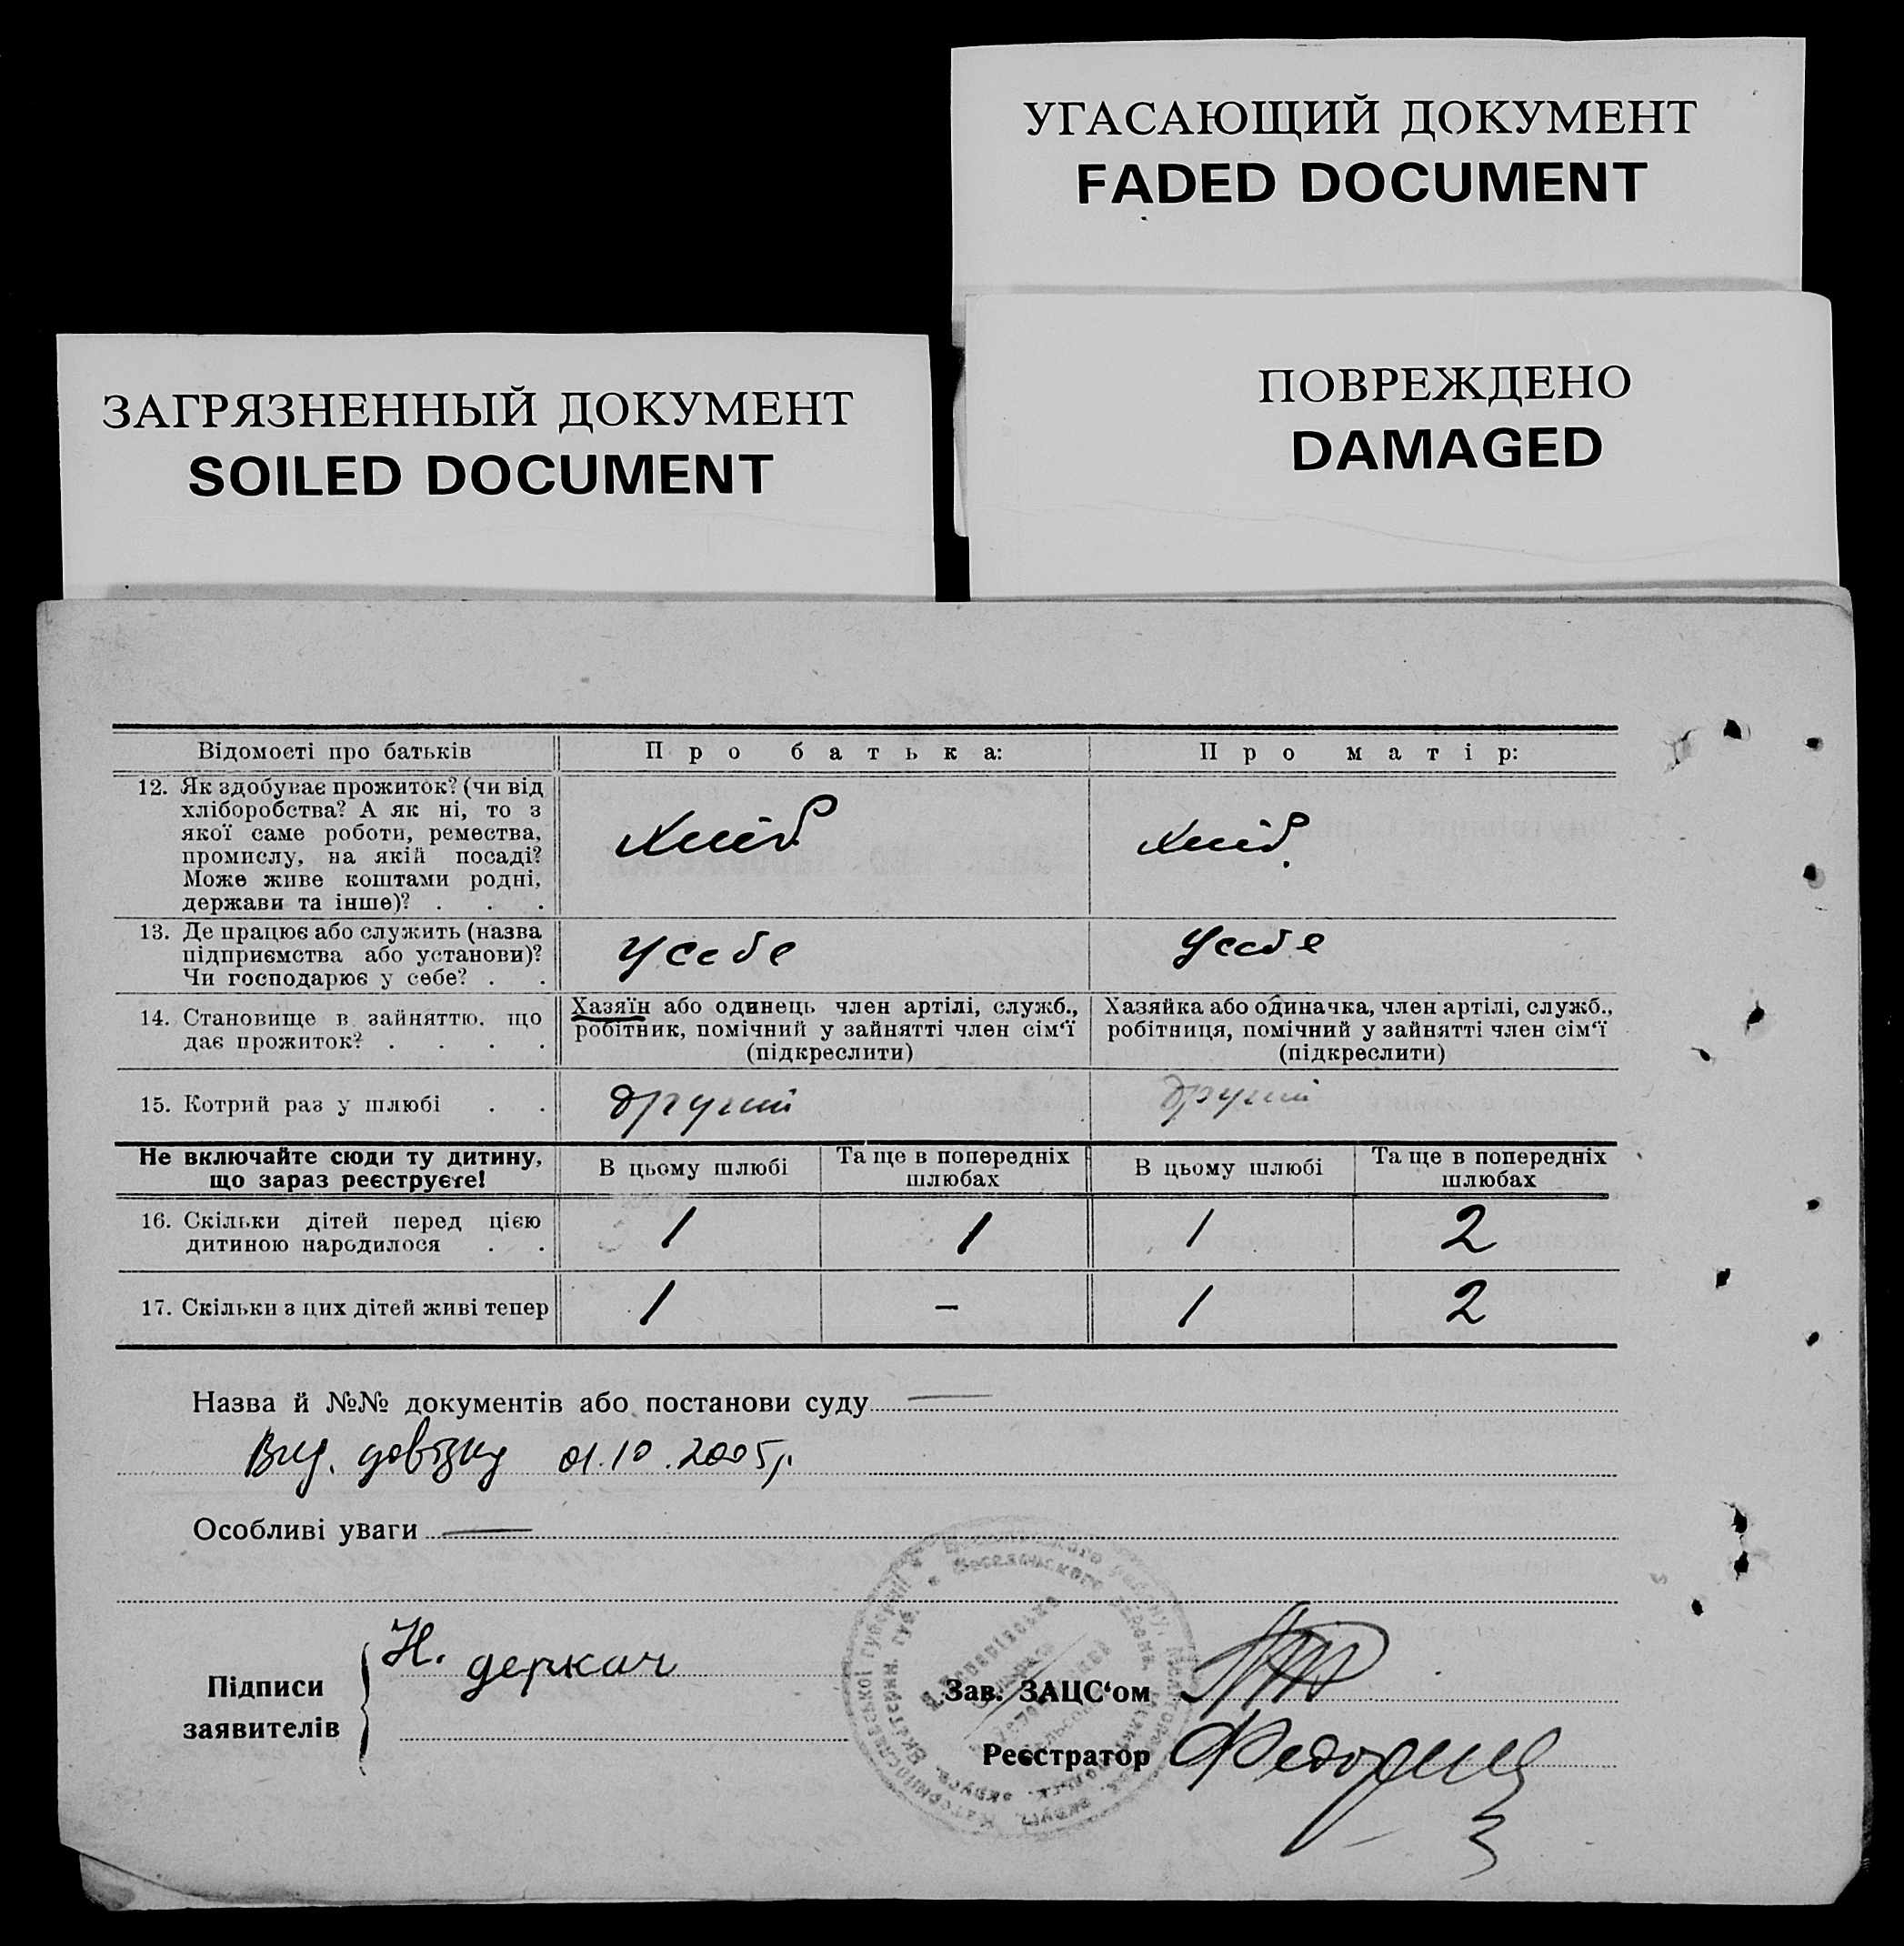 УГАСАЮЩИЙ ДОКУМЕНТ
FADED DOCUMENT
ПОВРЕЖДЕНО
DAMAGED
ЗАГРЯЗНЕННЫЙ ДОКУМЕНТ
SOILED DOCUMENT
Відомості про батьків
Про батька:
Про матір:
12. Як здобуває прожиток? (чи від
хліборобства? А як ні, то з
якої саме роботи, ремества,
промислу, на якій посаді?
Може живе коштами родні,
держави та інше)? . . .
Хліб.
Хліб.
13. Де працює або служить (назва
підприємства або установи)?
Чи господарює у себе? . .
У себе
У себе
14. Становище в зайняттю, що
дає прожиток? . . . .
Хазяїн або одинець член артілі, служб.,
робітник, помічний у зайнятті член сім'ї
(підкреслити)
Хазяйка або одиначка, член артілі, служб.,
робітниця, помічний у зайнятті член сім'ї
(підкреслити)
15. Котрий раз у шлюбі . .
другий
другий
Не включайте сюди ту дитину,
що зараз реєструєте!
В цьому шлюбі
Та ще в попередніх
шлюбах
В цьому шлюбі
Та ще в попередніх
шлюбах
16. Скільки дітей перед цією
дитиною народилося . .
1
1
1
2
17. Скільки з цих дітей живі тепер
1
-
1
2
Назва й №№ документів або постанови суду
Вид. довідку 01.10.2005р.
Особливі уваги
Підписи
заявителів
Н. деркач
Зав. ЗАЦС'ом
Реєстратор